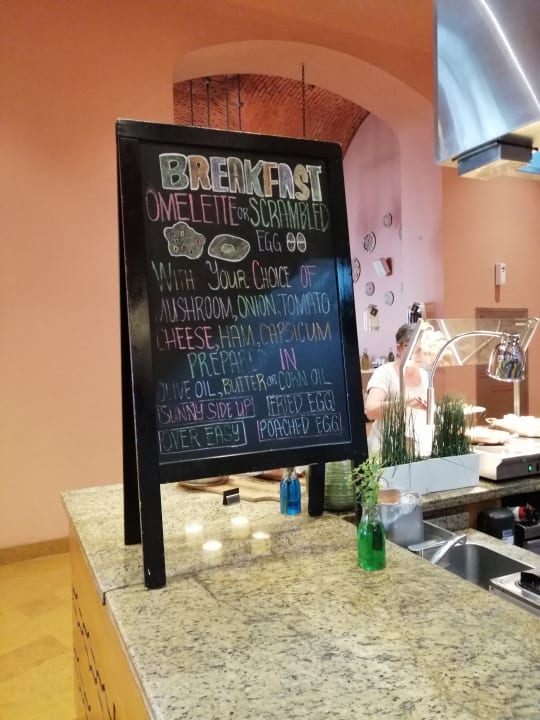 BREAKFAST
OMELETTE OR SCRAMBLED
EGG
WITH YOUR CHOICE OF
MUSHROOM, ONION, TOMATO
CHEESE, HAM, CAPSICUM
PREPARED IN
OLIVE OIL, BUTTER OR CORN OIL
SUNNY SIDE UP FRIED EGG
OVER EASY POACHED EGG